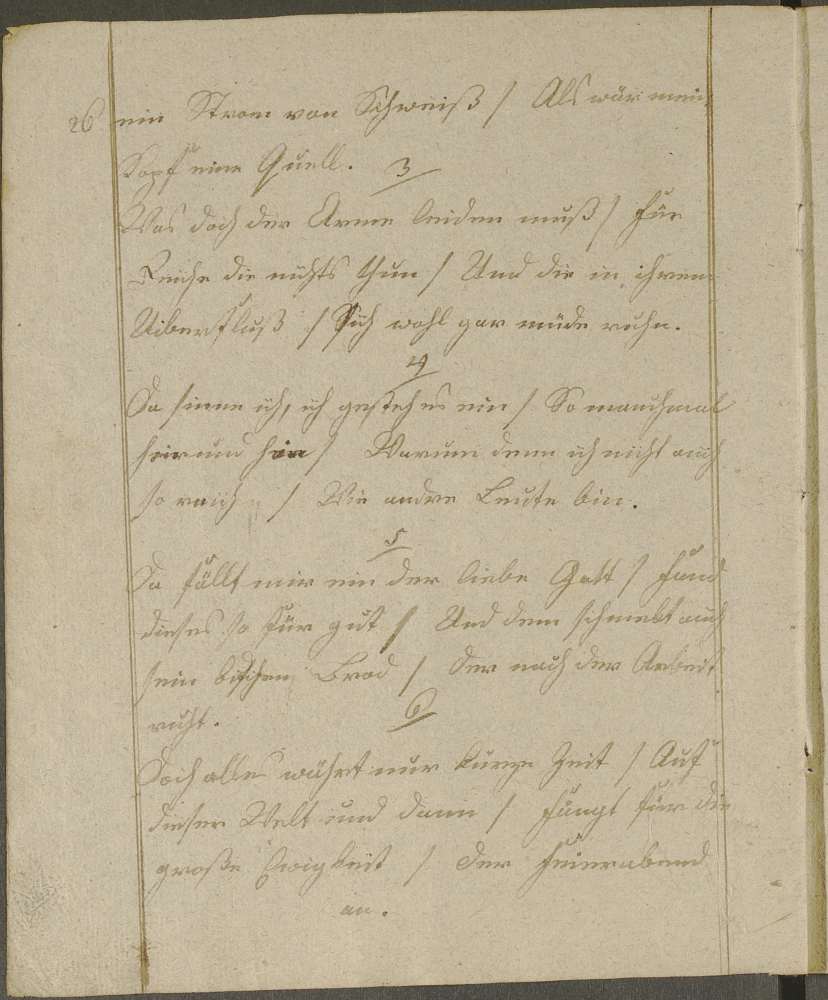 26 ein Strom von Schweiß / Als wär mein
Kopf eine Quell.
3
Was doch der Arme leiden muß / für
Reiche die nichts thun / Und die in ihrem
Uiberfluß / Sich wohl gar müde ruhn.
4
Da sinne ich, ich gesteh es ein / So manchmal
hin und her / Warum denn ich nicht auch
so reich / Wie andre Leute bin.
5
Da fällt mir ein der liebe Gott / fand
dieses so für gut / Und dem schmekt auch
sein bischen Brod / der nach der Arbeit
ruht.
6
Doch alles währt nur kurze Zeit / Auf
dieser Welt und dann / fängt für die
große Ewigkeit / der feierabend
an.